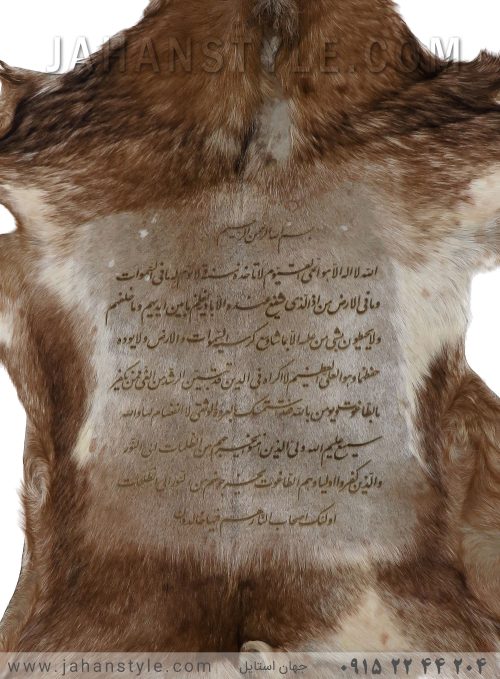 JAHANSTYLE.COM
بسم الله الرحمن الرحیم
الله لا اله الا هو الحی القیوم لا تاخذه سنة ولا نوم له ما فی السموات
وما فی الارض من ذا الذی یشفع عنده الا باذنه یعلم ما بین ایدیهم وما خلفهم
ولا یحیطون بشی من علمه الا بما شاء وسع کرسیه السموات والارض ولا یوده
حفظهما وهو العلی العظیم لا اکراه فی الدین قد تبین الرشد من الغی فمن یکفر
بالطاغوت ویومن بالله فقد استمسک بالعروة الوثقی لا انفصام لها والله
سمیع علیم الله ولی الذین امنوا یخرجهم من الظلمات الی النور
والذین کفروا اولیاوهم الطاغوت یخرجونهم من النور الی الظلمات
اولئک اصحاب النار هم فیها خالدون
www.jahanstyle.com جهان استایل ۰۹۱۵ ۲۲ ۴۴ ۲۰۴